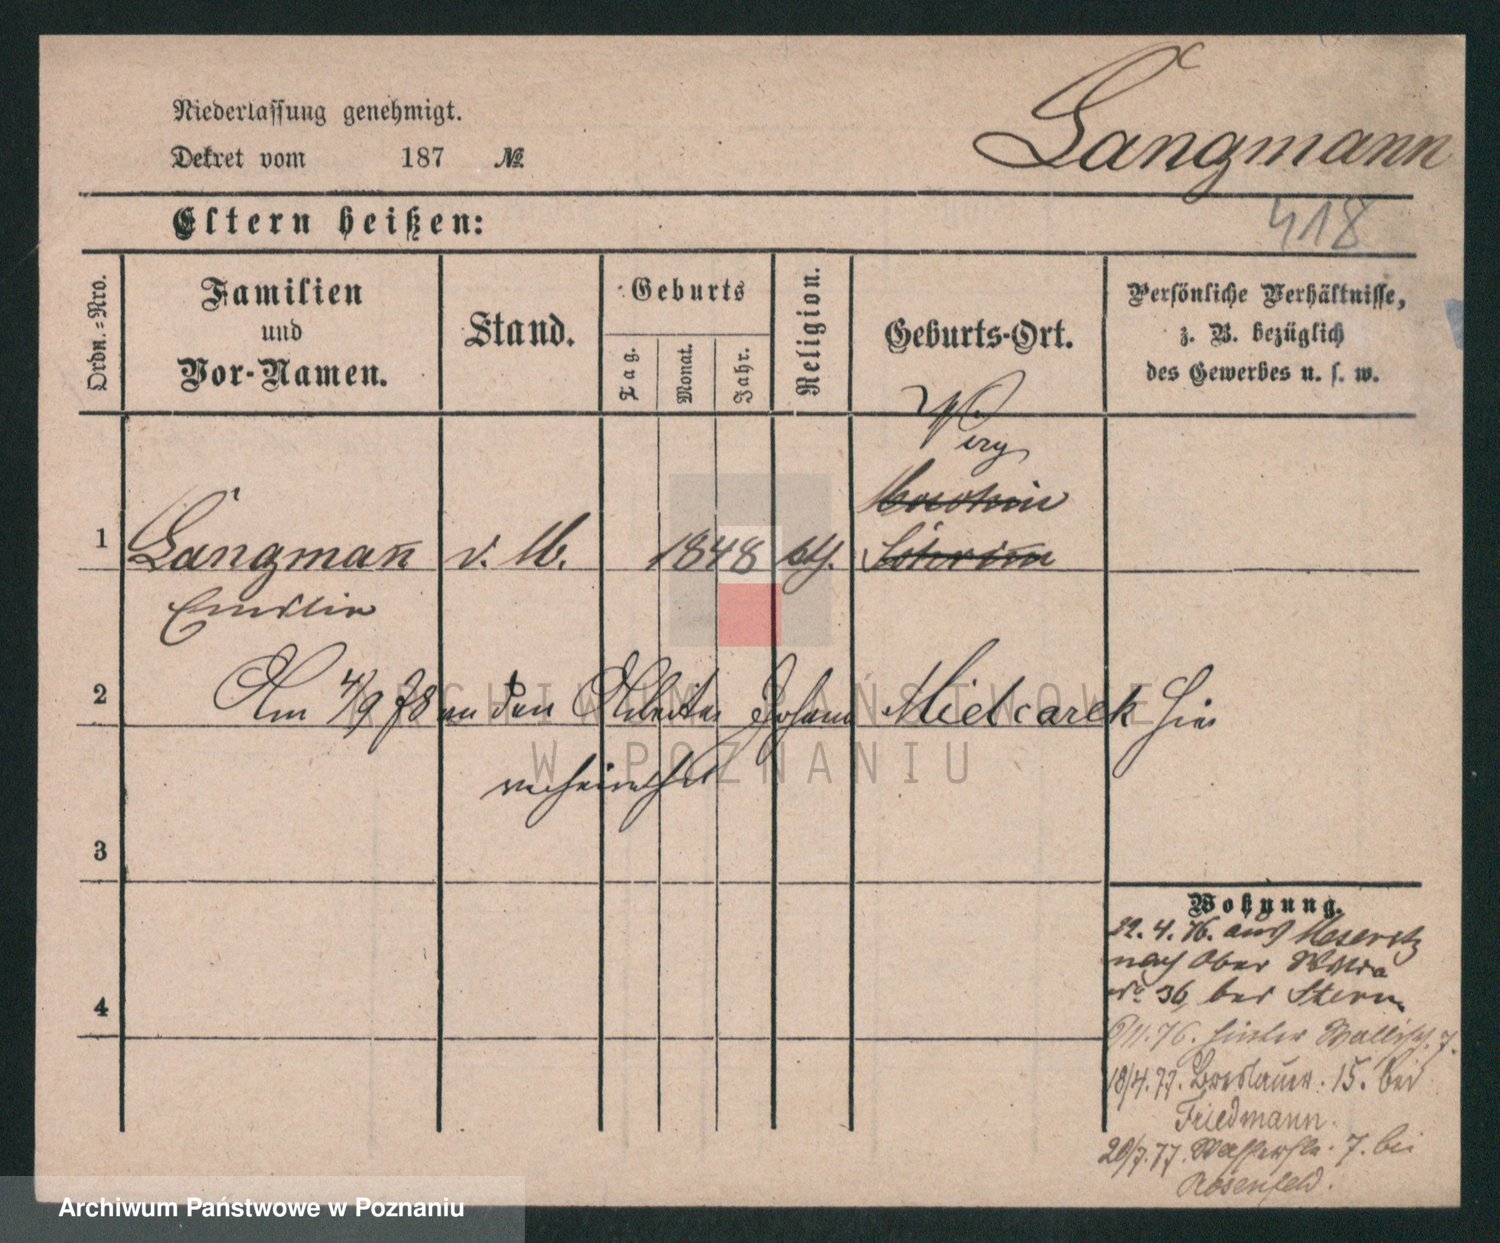 Langmann
Niederlassung genehmigt.
Dekret vom 187 №
418
Eltern heißen:
Ordn.=Nro.
Familien
und
Vor-Namen.
Stand.
Geburts
Tag.
Monat.
Jahr.
Religion.
Geburts-Ort.
Persönliche Verhältnisse,
z. B. bezüglich
des Gewerbes u. s. w.
1 Langmañ 1848
Emilie
2 Am 4/9 78 an den Arbeiter Johann Mielcarek hier
verheirathet
3
4
Wohnung.
22. 4. 76. aus Meseritz
nach Ober
No 36 bei Stern
6/11. 76. hinter Wallisch. 7.
18/4. 77. Breslauer. 15. bei
Friedmann.
20/7. 77. Wasserstr. 7. bei
Rosenfeld.
ARCHIWUM PAŃSTWOWE
W POZNANIU
Archiwum Państwowe w Poznaniu